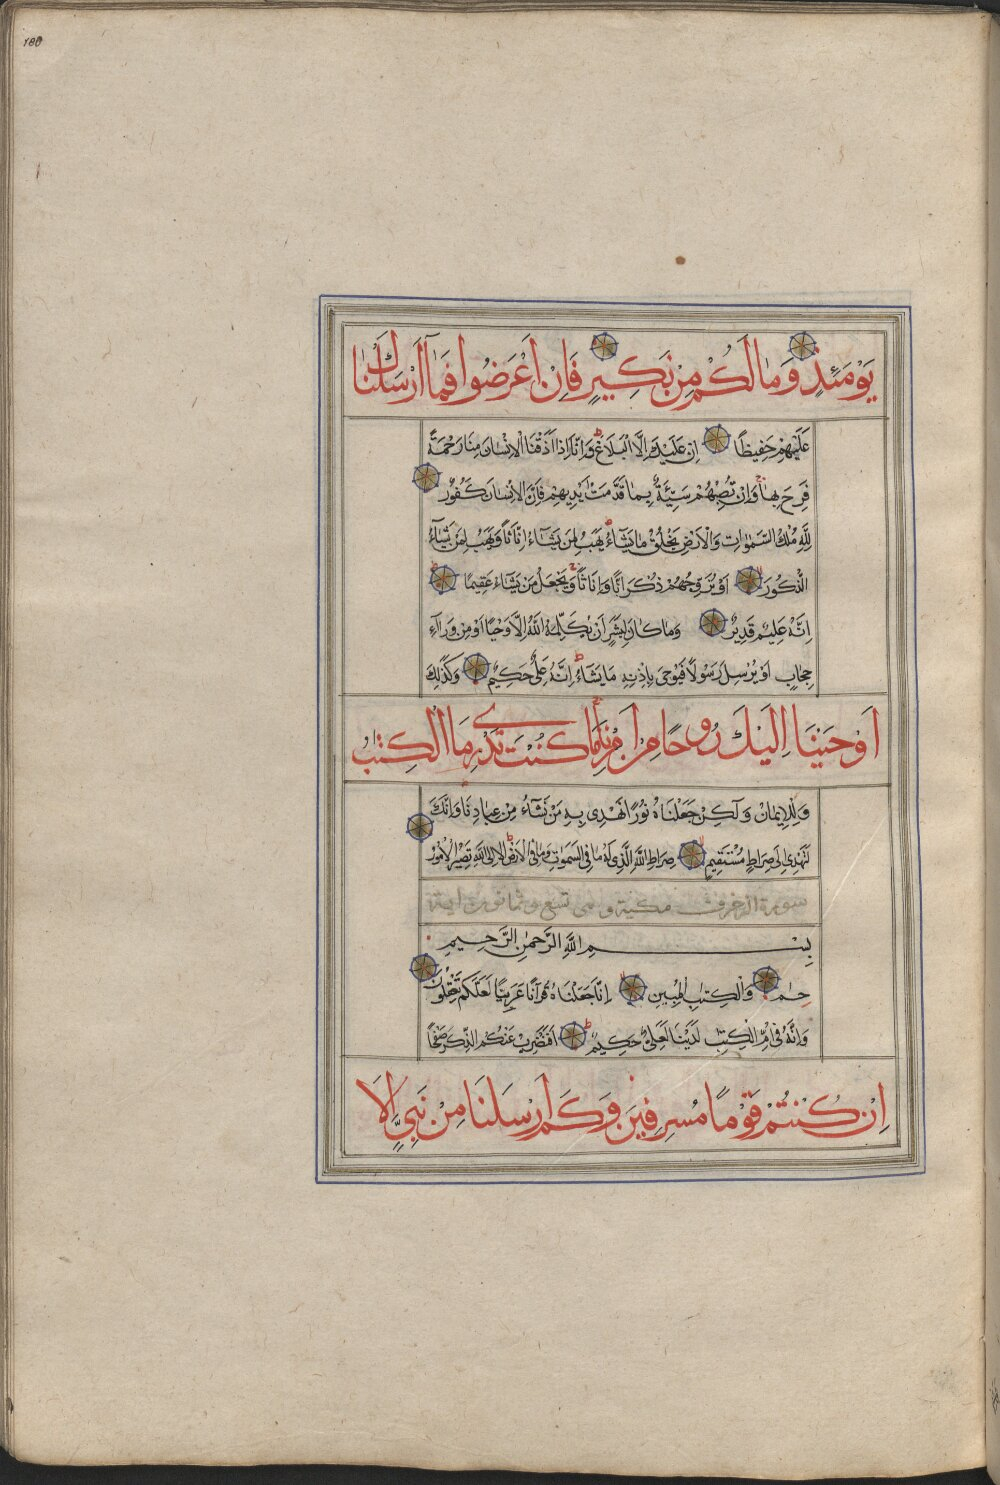 ٢٥٥
يَوْمَئِذٍ وَمَا لَكُمْ مِنْ نَكِيرٍ فَاِنْ اَعْرَضُوا فَمَآ اَرْسَلْنَاكَ
عَلَيْهِمْ حَفِيظًا اِنْ عَلَيْكَ اِلَّا الْبَلَاغُ وَاِنَّا اِذَا اَذَقْنَا الْاِنْسَانَ مِنَّا رَحْمَةً
فَرِحَ بِهَا وَاِنْ تُصِبْهُمْ سَيِّئَةٌ بِمَا قَدَّمَتْ اَيْدِيهِمْ فَاِنَّ الْاِنْسَانَ كَفُورٌ
لِلَّهِ مُلْكُ السَّمٰوَاتِ وَالْاَرْضِ يَخْلُقُ مَا يَشَآءُ يَهَبُ لِمَنْ يَشَآءُ اِنَاثًا وَيَهَبُ لِمَنْ يَشَآءُ
الذُّكُورَ اَوْ يُزَوِّجُهُمْ ذُكْرَانًا وَاِنَاثًا وَيَجْعَلُ مَنْ يَشَآءُ عَقِيمًا
اِنَّهُ عَلِيمٌ قَدِيرٌ وَمَا كَانَ لِبَشَرٍ اَنْ يُكَلِّمَهُ اللّٰهُ اِلَّا وَحْيًا اَوْ مِنْ وَرَآءِ
حِجَابٍ اَوْ يُرْسِلَ رَسُولًا فَيُوحِىَ بِاِذْنِهِ مَا يَشَآءُ اِنَّهُ عَلِىٌّ حَكِيمٌ وَكَذٰلِكَ
اَوْحَيْنَا اِلَيْكَ رُوحًا مِنْ اَمْرِنَا مَا كُنْتَ تَدْرِى مَا الْكِتٰبُ
وَلَا الْاِيمَانُ وَلٰكِنْ جَعَلْنَاهُ نُورًا نَهْدِى بِهِ مَنْ نَشَآءُ مِنْ عِبَادِنَا وَاِنَّكَ
لَتَهْدِى اِلٰى صِرَاطٍ مُسْتَقِيمٍ صِرَاطِ اللّٰهِ الَّذِى لَهُ مَا فِى السَّمٰوَاتِ وَمَا فِى الْاَرْضِ اَلَا اِلَى اللّٰهِ تَصِيرُ الْاُمُورُ
سورة الزخرف مكية وهى تسع وثمانون اية
بِسْمِ اللّٰهِ الرَّحْمٰنِ الرَّحِيمِ
حٰم وَالْكِتٰبِ الْمُبِينِ اِنَّا جَعَلْنَاهُ قُرْآنًا عَرَبِيًّا لَعَلَّكُمْ تَعْقِلُونَ
وَاِنَّهُ فِى اُمِّ الْكِتٰبِ لَدَيْنَا لَعَلِىٌّ حَكِيمٌ اَفَنَضْرِبُ عَنْكُمُ الذِّكْرَ صَفْحًا
اِنْ كُنْتُمْ قَوْمًا مُسْرِفِينَ وَكَمْ اَرْسَلْنَا مِنْ نَبِىٍّ اِلَّا